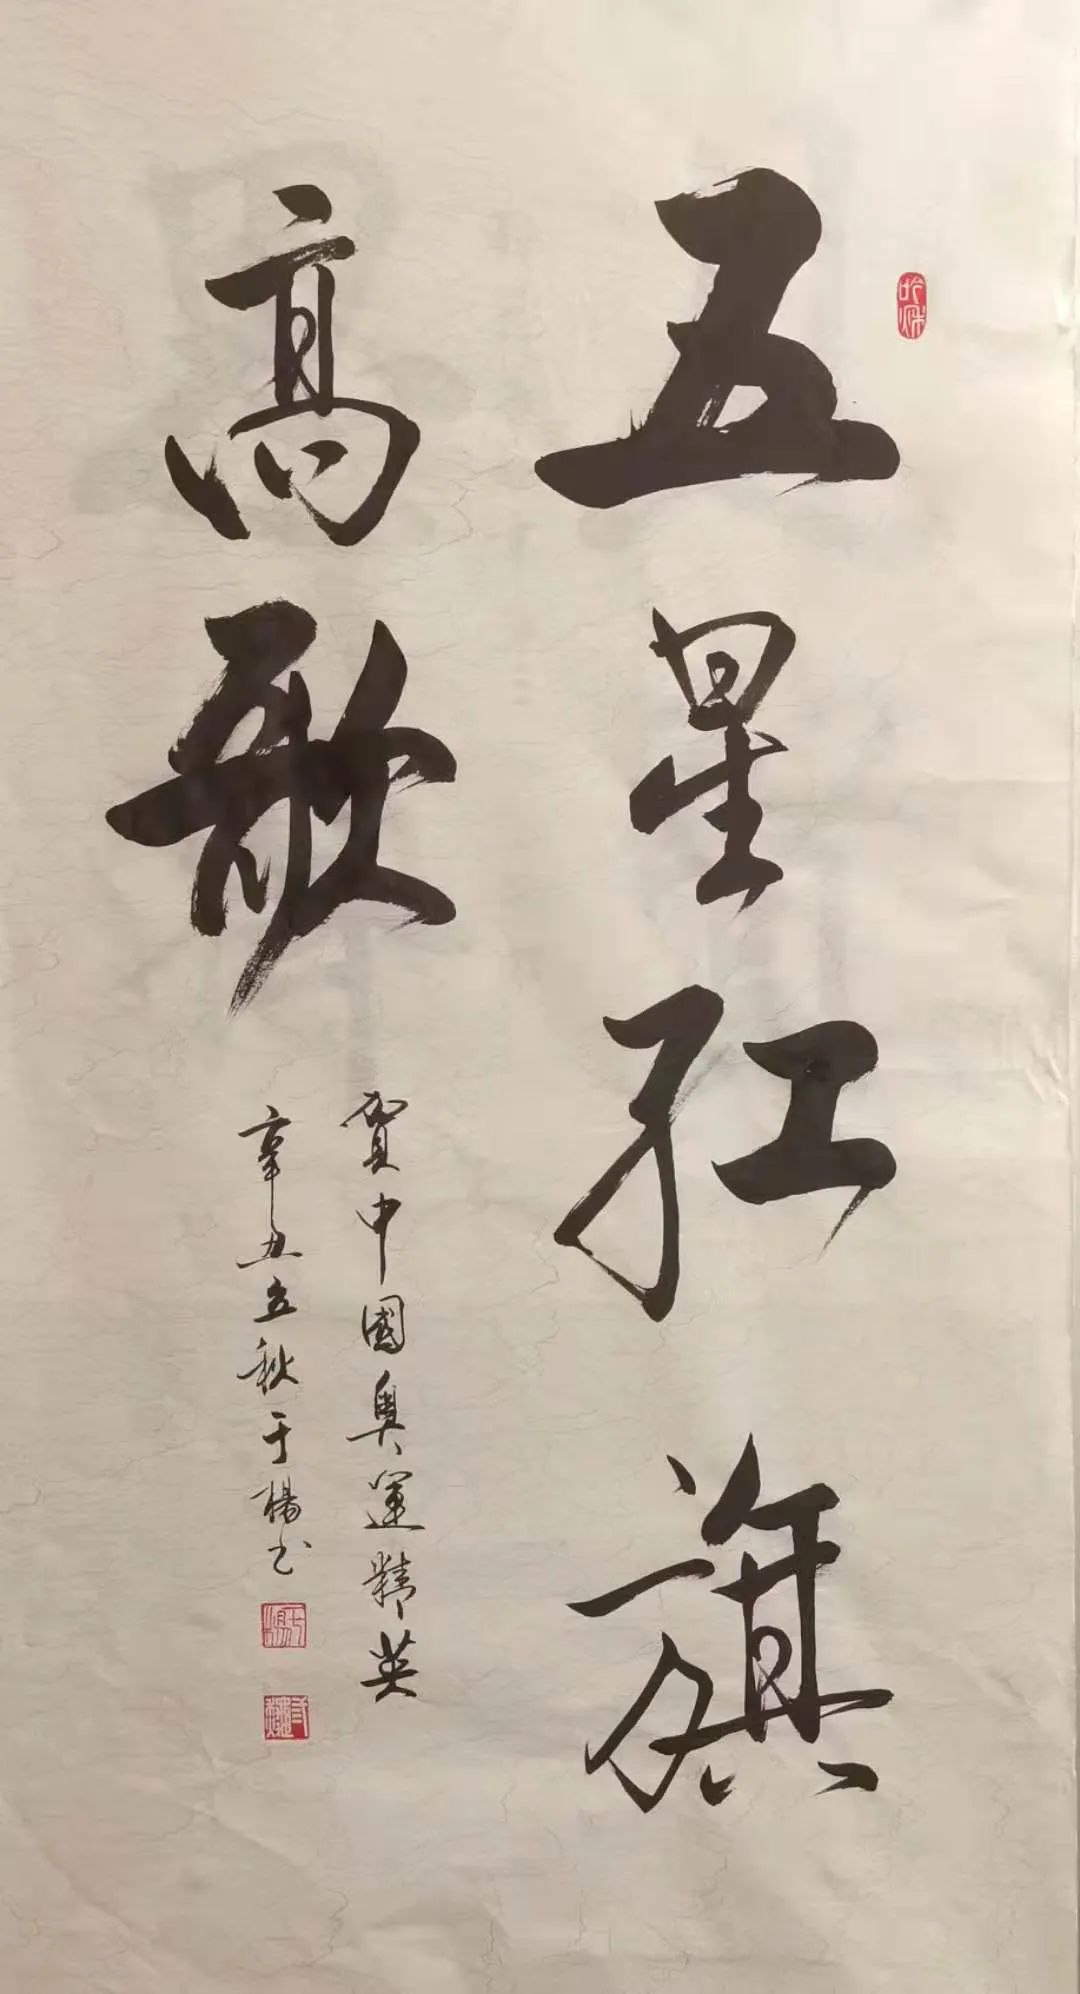 五星红旗
高歌
贺中國奥運精英
辛丑立秋于楊书